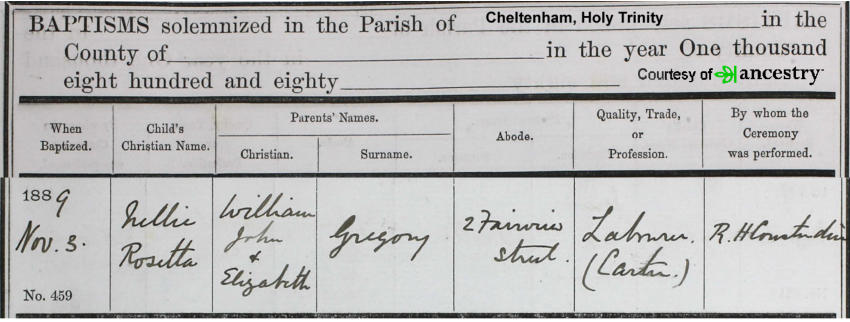 BAPTISMS solemnized in the Parish of Cheltenham, Holy Trinity in the
County of in the year One thousand
eight hundred and eighty
Courtesy of ancestry
When Baptized.
Child's Christian Name.
Parents' Names.
Christian.
Surname.
Abode.
Quality, Trade, or Profession.
By whom the Ceremony was performed.
1889
Nov. 3.
No. 459
Nellie
Rosetta
William
John
&
Elizabeth
Gregory
2 Fairview
Street.
Labourer.
(Carter.)
R. H